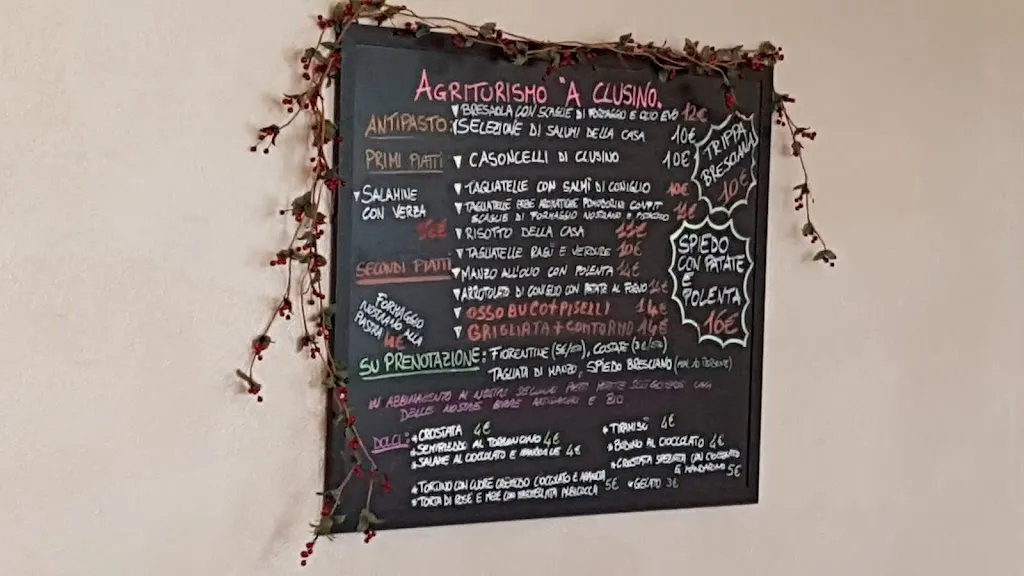 AGRITURISMO "A CLUSINO.
ANTIPASTO: BRESAOLA CON SCAGLIE DI FORMAGGIO E OLIO EVO 12€
SELEZIONE DI SALUMI DELLA CASA 10€
PRIMI PIATTI CASONCELLI DI CLUSINO 10€
TRIPPA
BRESCIANA
10€
SALAMINE
CON VERZA
TAGLIATELLE CON SALMÌ DI CONIGLIO 10€
TAGLIATELLE ERBE AROMATICHE POMODORINI CONFIT
SCAGLIE DI FORMAGGIO NOSTRANO E PISTACCHIO
RISOTTO DELLA CASA
TAGLIATELLE RAGÙ E VERDURE 10€
SECONDI PIATTI MANZO ALL'OLIO CON POLENTA 14€
ARROTOLATO DI CONIGLIO CON PATATE AL FORNO 14€
OSSOBUCO+PISELLI 14€
GRIGLIATA+CONTORNO 14€
SPIEDO
CON PATATE
E
POLENTA
16€
FORMAGGIO
NOSTRANO ALLA
PIASTRA
SU PRENOTAZIONE: FIORENTINE COSTATE
TAGLIATA DI MANZO, SPIEDO BRESCIANO
IN ABBINAMENTO AI NOSTRI SECONDI
DELLE NOSTRE E BIO
DOLCI: CROSTATA 4€
SEMIFREDDO AL TORRONCINO 4€
SALAME AL CIOCCOLATO E 4€
TORTINO CON CUORE CREMOSO CIOCCOLATO E
TORTA DI ROSE E MELE CON MARMELLATA 5€
TIRAMISÙ 4€
BUDINO AL CIOCCOLATO 4€
CROSTATA SPEZIATA CON CIOCCOLATO
E MANDARINO 5€
GELATO 3€